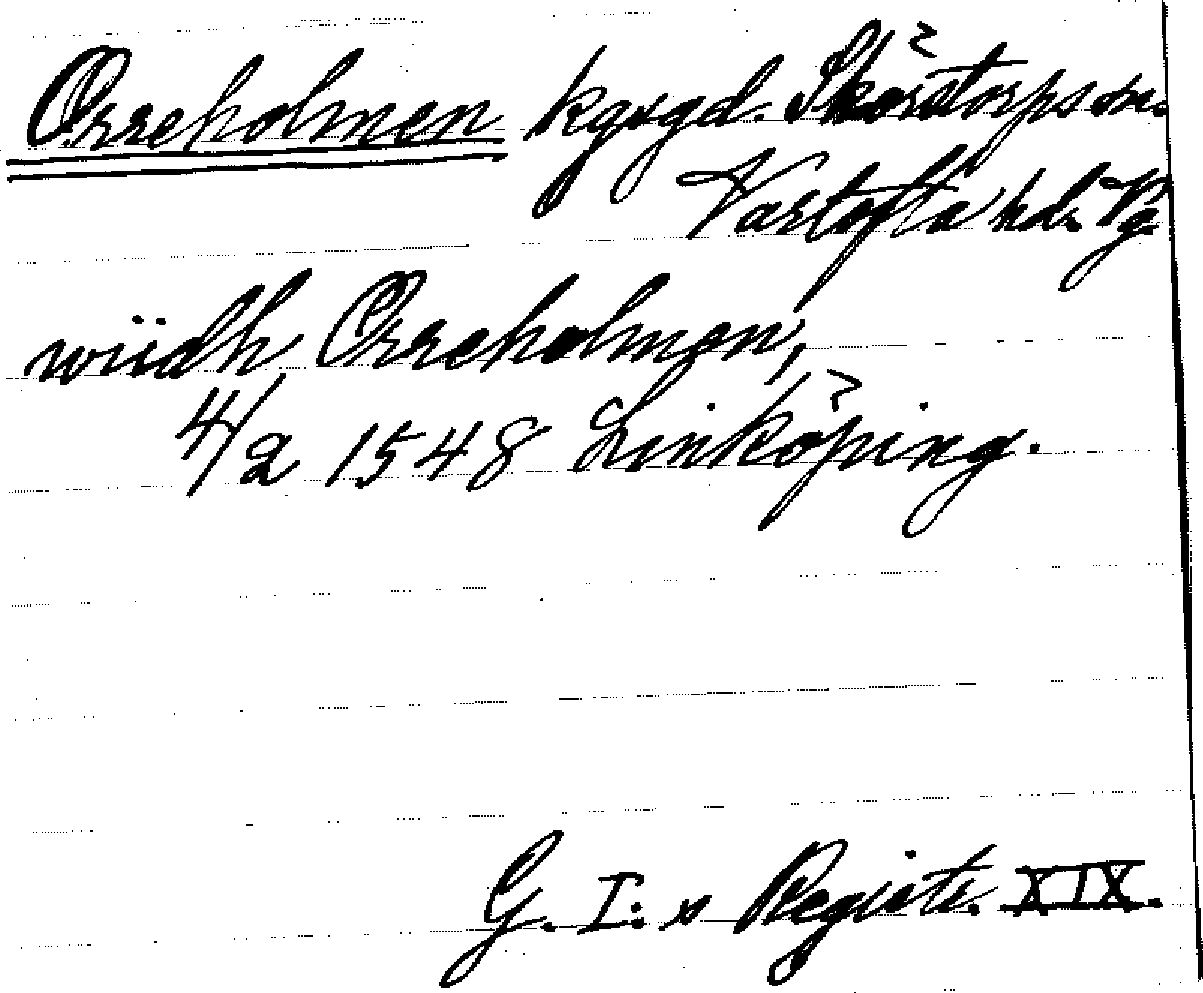 Orreholmen kgsgd. Skörstorps sn.
Vartofta hd. Vg.
wiidh Orreholmen,
4/2 1548 Linköping.
G. I:s Registr. XIX.